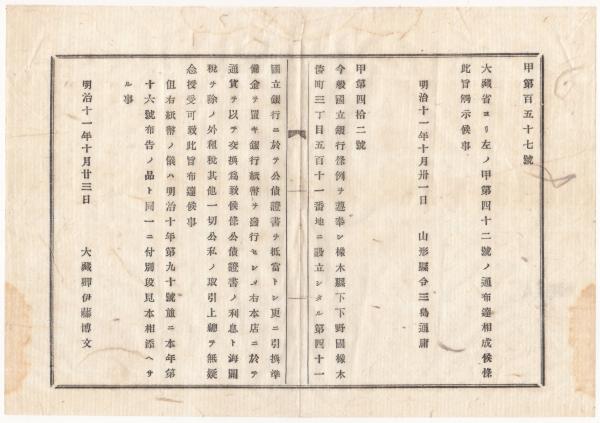 甲第百五十七號
大藏省ヨリ左ノ甲第四十二號ノ通布達相成候條
此旨觸示候事
明治十一年十月卅一日　山形縣令三島通庸
甲第四拾二號
今般國立銀行條例ヲ遵奉シ橡木縣下下野國橡木
倭町三丁目五百十一番地ニ設立シタル第四十一
國立銀行ニ於テ公債證書ヲ抵當トシ更ニ引換準
備金ヲ置キ銀行紙幣ヲ發行セシメ右本店ニ於テ
通貨ヲ以テ交換爲致候條公債證書ノ利息ト海關
稅ヲ除ノ外租稅其他一切公私ノ取引上總テ無疑
念授受可致此旨布達候事
但右紙幣ノ儀ハ明治十年第九十號並ニ本年第
十六號布告ノ品ト同一ニ付別段見本相添ヘサ
ル事
明治十一年十月廿三日　大藏卿伊藤博文